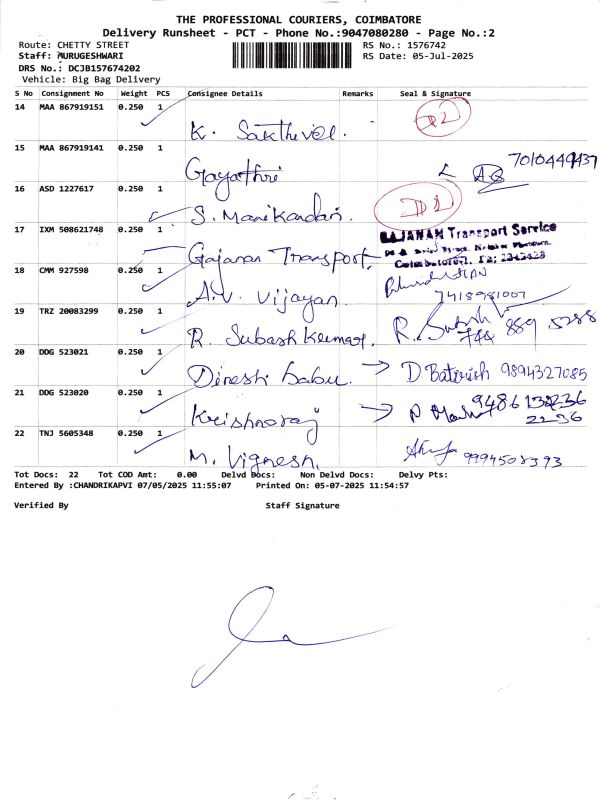 THE PROFESSIONAL COURIERS, COIMBATORE
Delivery Runsheet - PCT - Phone No.:9047080280 - Page No.:2
Route: CHETTY STREET RS No.: 1576742
Staff: MURUGESHWARI RS Date: 05-Jul-2025
DRS No.: DCJB157674202
Vehicle: Big Bag Delivery
S No Consignment No Weight PCS Consignee Details Remarks Seal & Signature
14 MAA 867919151 0.250 1
K. Sakthivel. D2
15 MAA 867919141 0.250 1
Gayathri 7010449437
16 ASD 1227617 0.250 1
S. Manikandan. D2
17 IXM 508621748 0.250 1
Gajanan Transport GAJANAN Transport Service
18 CMM 927598 0.250 1
A.V. Vijayan. 7418981007
19 TRZ 20083299 0.250 1
R. Subash Kumar. R. Subash 744 889 5288
20 DDG 523021 0.250 1
Dinesh babu. → D Batirish 9894327085
21 DDG 523020 0.250 1
Krishnaraj →
2236
22 TNJ 5605348 0.250 1
M. Vignesh. 9994508393
Tot Docs: 22 Tot COD Amt: 0.00 Delvd Docs: Non Delvd Docs: Delvy Pts:
Entered By :CHANDRIKAPVI 07/05/2025 11:55:07 Printed On: 05-07-2025 11:54:57
Verified By Staff Signature